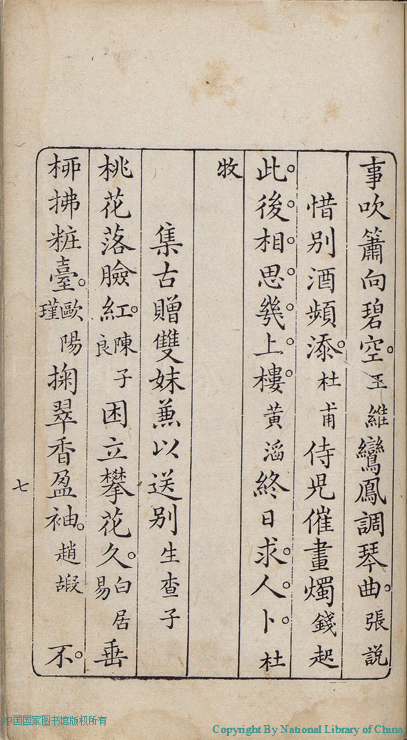 事吹簫向碧空王維鸞鳳調琴曲張說
惜別酒頻添杜甫侍兒催畫燭錢起
此後相思幾上樓黃滔終日求人卜杜
牧
集古贈雙妹兼以送別生查子
桃花落臉紅陳子良困立攀花久白居易垂
桺拂粧臺歐陽瑾掬翠香盈袖趙嘏不
七
中国国家图书馆版权所有
Copyright By National Library of China